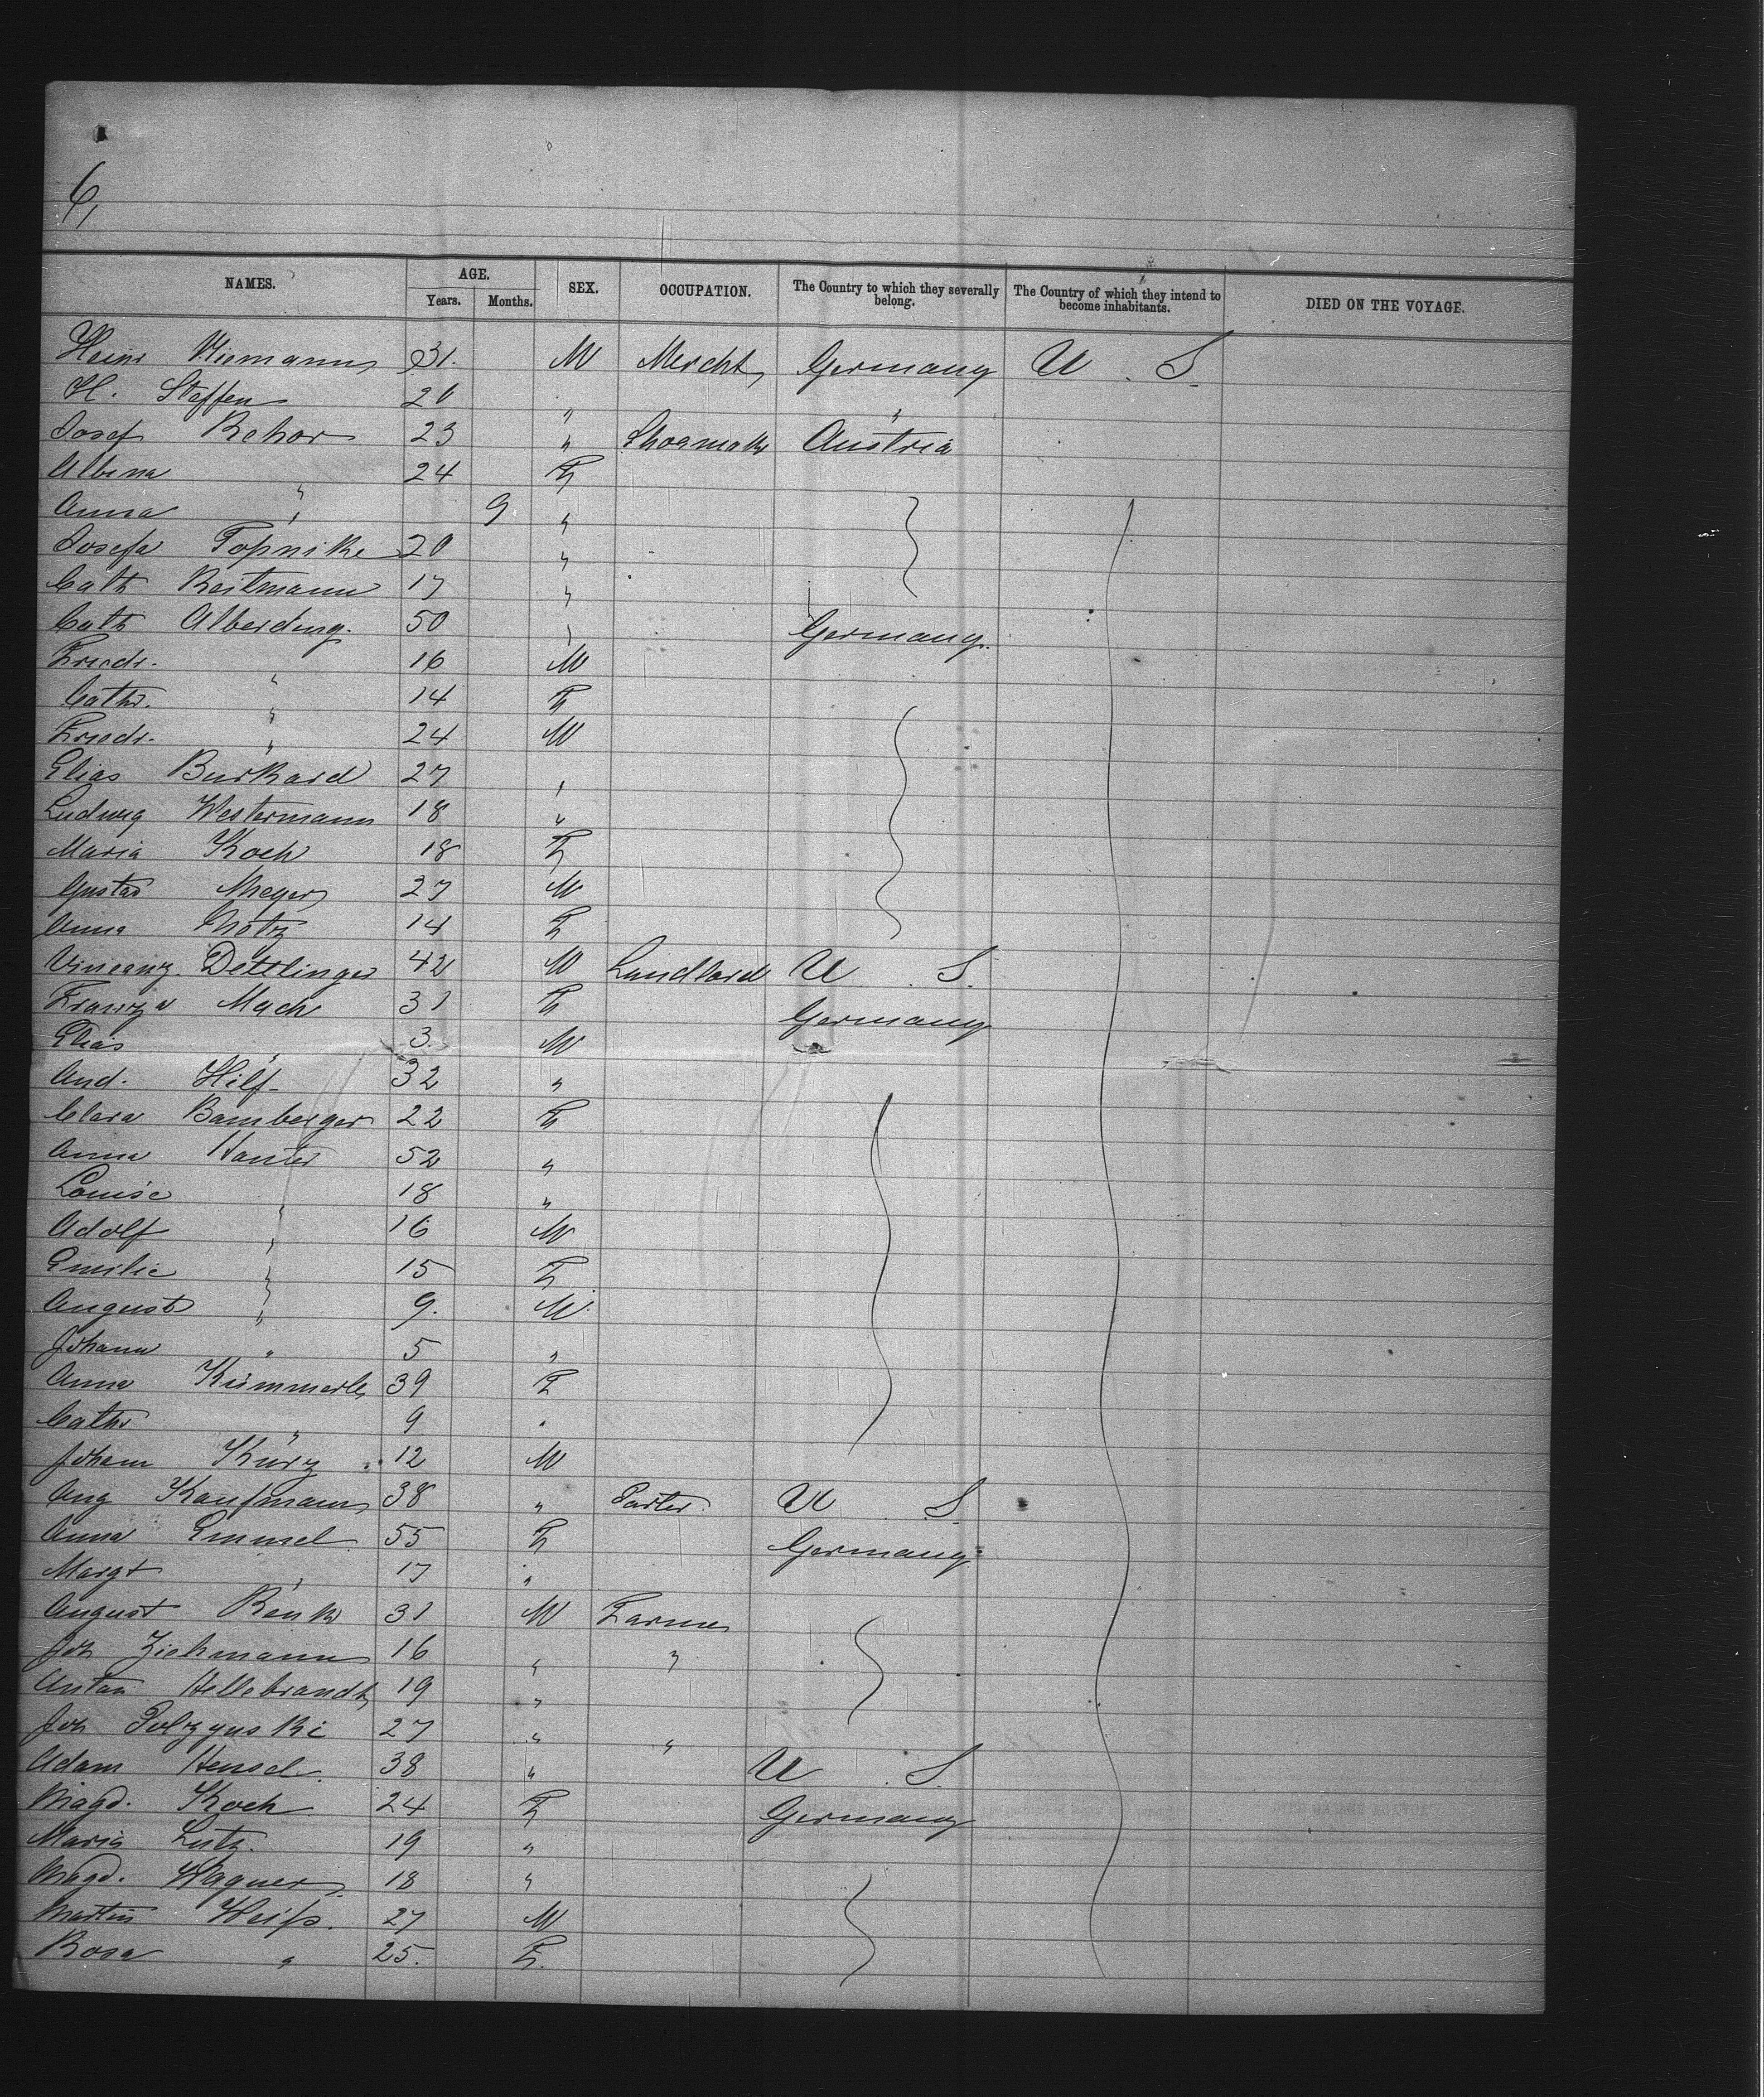 6,
NAMES. AGE. Years. Months. SEX. OCCUPATION. The Country to which they severally belong. The Country of which they intend to become inhabitants. DIED ON THE VOYAGE.
Heinr Niemann 31. M Mercht Germany U. S.
H. Steffen 20 " "
Josef Rehor 23 " Shoemaker Austria
Albina " 24 F
Anna " 9 "
Josefa Topnike 20 "
Cath Reitmann 17 "
Cath Alberding. 50 " Germany.
Friedr. " 16 M
Cathr. " 14 F
Friedr. " 24 M
Elias Burkard 27 "
Ludwig Westermann 18 "
Maria Koch 18 F
Gustav Meyer 27 M
Anna 14 F
Vincenz. Dettlinger 42 M Landlord U. S.
Franza Mach 31 F Germany
Elias " 3. M
And. Hilf. 32 "
Clara Bamberger 22 F
Anna Hanter 52 "
Louise " 18 "
Adolf " 16 M
Emilie " 15 F
August " 9. M
Johann " 5 "
Anna Kümmerle 39 F
Cathr " 9 "
Johann Kurz 12 M
Aug Kaufmann 38 " Porter. U. S.
Anna 55 F Germany
Margt " 17 "
August Renk 31 M Farmer
Joh Ziehmann 16 " "
Anton Hellebrandt 19 "
Joh Polzynski 27 " "
Adam Hensel. 38 " U. S.
Magd. Koch 24 F Germany
Maria Lutz. 19 "
Magd. Wagner 18 "
Martin Weiss. 27 M
Rosa " 25. F.